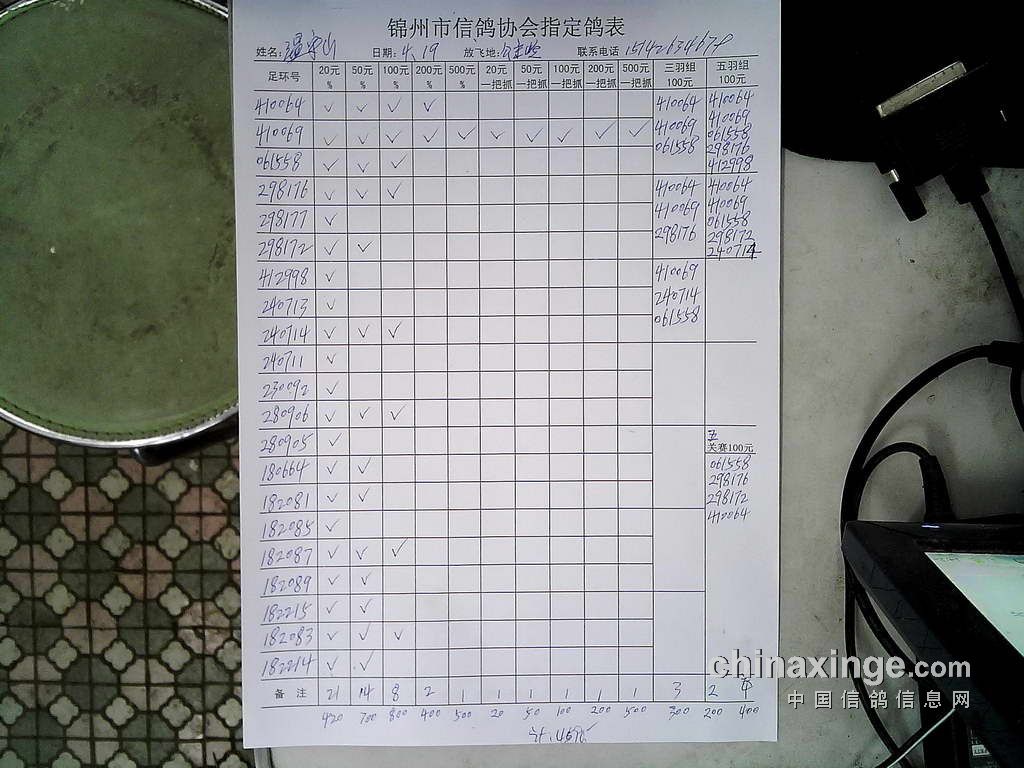 锦州市信鸽协会指定鸽表
姓名: 温守山 日期: 4.19 放飞地: 联系电话
足环号 20元% 50元% 100元% 200元% 500元% 20元一把抓 50元一把抓 100元一把抓 200元一把抓 500元一把抓 三羽组100元 五羽组100元
410064 ✓ ✓ ✓ ✓ 410064 410064
410069 ✓ ✓ ✓ ✓ ✓ ✓ ✓ ✓ ✓ ✓ 410069 410069
061558 ✓ ✓ ✓ 061558 061558
298176
412998
298176 ✓ ✓ ✓ 410064 410064
298177 ✓ 410069 410069
061558
298172 ✓ ✓ 298176 298172
240714
412998 ✓ 410069
240713 ✓ 240714
240714 ✓ ✓ ✓ 061558
240711 ✓
230092 ✓
280906 ✓ ✓ ✓
280905 ✓ 五关赛100元
180664 ✓ ✓ 061558
298176
182081 ✓ ✓ 298172
182085 ✓ 410064
182087 ✓ ✓ ✓
182089 ✓ ✓
182215 ✓ ✓
182083 ✓ ✓ ✓
182214 ✓ ✓
备 注 21 14 8 2 1 1 1 1 1 1 3 2
420 700 800 400 500 20 50 100 200 500 300 200 400
chinaxinge.com
中国信鸽信息网